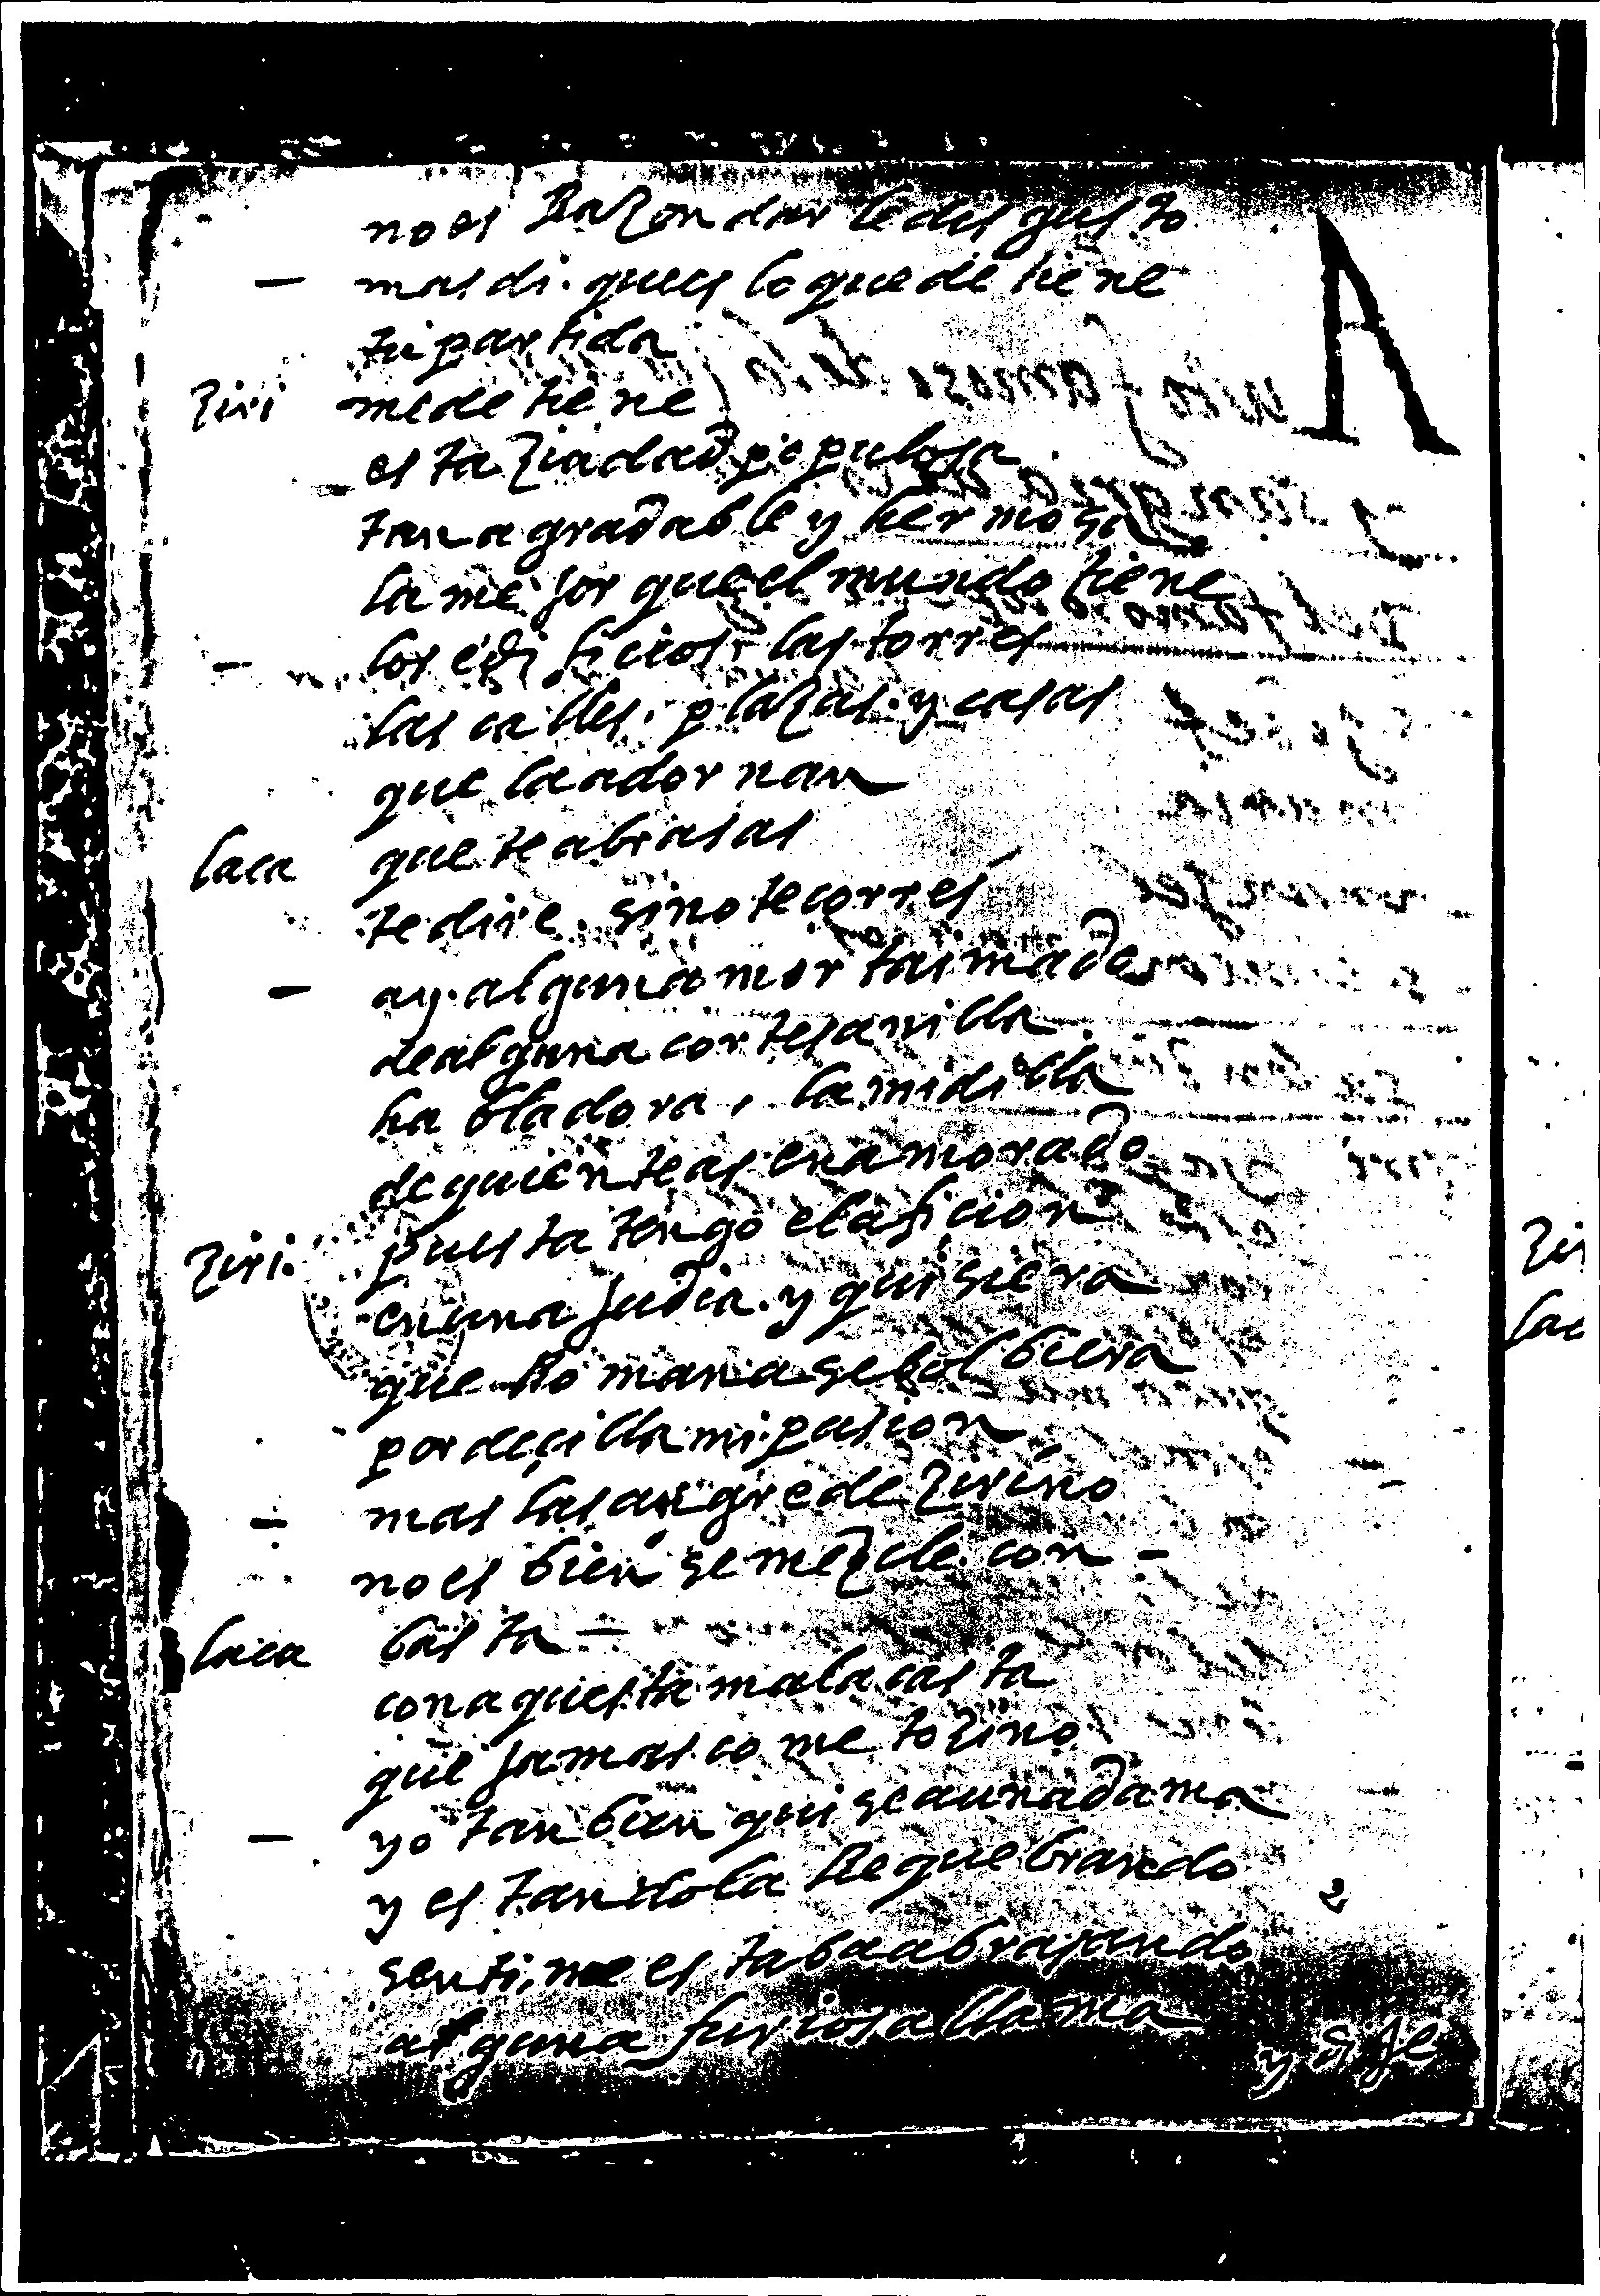 no es Razon darle disgusto
— mas di. ques lo que detiene
tu partida
ziri me detiene
esta ziudad populosa
tan agradable y hermosa
la mejor que el mundo tiene
— los edificios. las torres
las calles. plazas. y casas
que la adornan
laca que te abrasas
te dire. si no te corres
— ay. algun amor taimado
de alguna cortesanilla
habladora, lamidilla
de quien te as enamorado
ziri. puesta tengo el aficion
en una judia. y quisiera
que Romana se bolbiera
por deçilla mi pasion,
— mas la sangre de zirino
no es bien se mezcle con —
laca basta —
con aquesta mala casta
que jamas come tozino
— yo tanbien quise a una dama
y estandola Requebrando
senti, me estaba abrasando
alguna furiosa llama
y dije
A
2